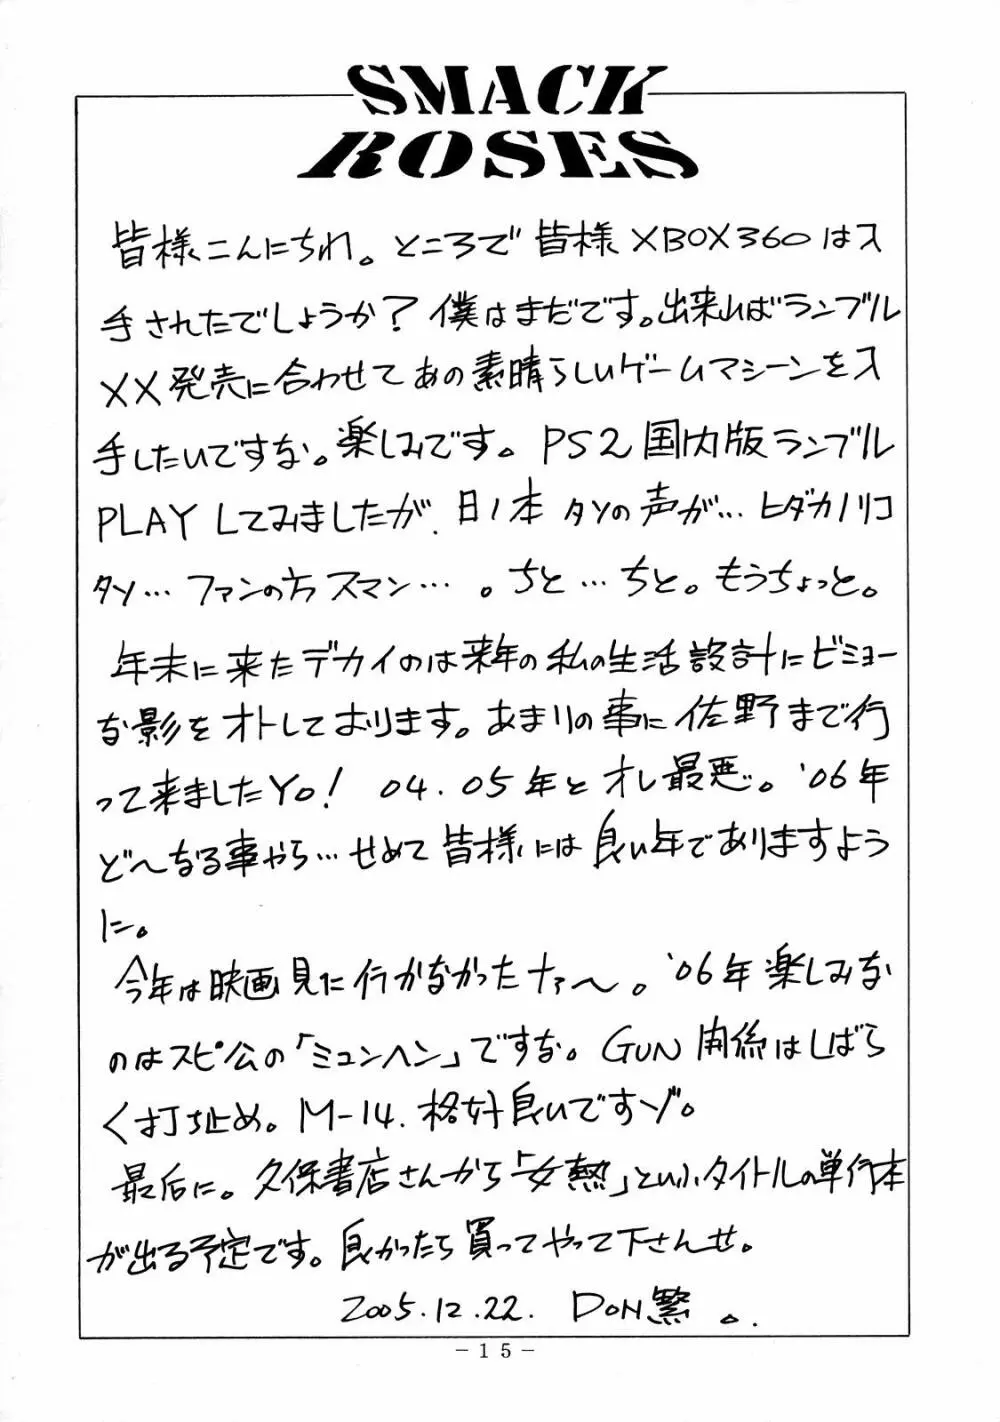 SMACK
ROSES
皆様こんにちわ。ところで皆様XBOX360は入
手されたでしょうか？僕はまだです。出来ればランブル
XX発売に合わせてあの素晴らしいゲームマシーンを入
手したいですな。楽しみです。PS2国内版ランブル
PLAYしてみましたが、日ノ本タソの声が…ヒダカノリコ
タソ…ファンの方スマン…。ちと…ちと。もうちょっと。
年末に来たデカイのは来年の私の生活設計にビミョー
な影をオトしております。あまりの事に佐野まで行
って来ましたYo! 04.05年とオレ最悪。'06年
ど〜なる事やら…せめて皆様には良い年でありますよう
に。
今年は映画見に行かなかったナァ〜。'06年楽しみな
のはスピ公の「ミュンヘン」ですな。GUN関係はしばら
く打ち止め。M-14.格好良いですゾ。
最后に。久保書店さんから「女熱」といふタイトルの単行本
が出る予定です。良かったら買ってやって下さんせ。
2005.12.22. DON繁。.
-15-